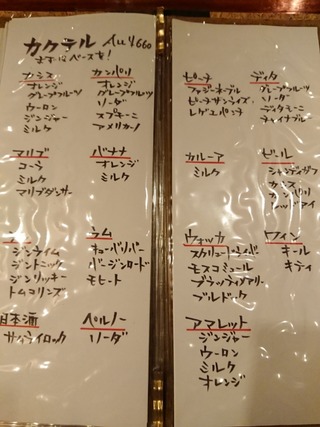 カクテル All ¥660
まずはベースを!
カシス
オレンジ
グレープフルーツ
ウーロン
ジンジャー
ミルク
カンパリ
オレンジ
グレープフルーツ
ソーダ
スプモーニ
アメリカーノ
マリブ
コーラ
ミルク
マリブダンサー
バナナ
オレンジ
ミルク
ジンライム
ジントニック
ジンリッキー
トムコリンズ
ラム
キューバリバー
バージンロード
モヒート
日本酒
サムライロック
ペルノー
ソーダ
ピーチ
ファジーネーブル
ピーチサンライズ
レゲエパンチ
ディタ
グレープフルーツ
ソーダ
ディタモーニ
チャイナブルー
カルーア
ミルク
ビール
シャンディガフ
カシス
レッドアイ
ウォッカ
スクリュードライバー
モスコミュール
ブラッディマリー
ブルドック
ワイン
キール
キティ
アマレット
ジンジャー
ウーロン
ミルク
オレンジ